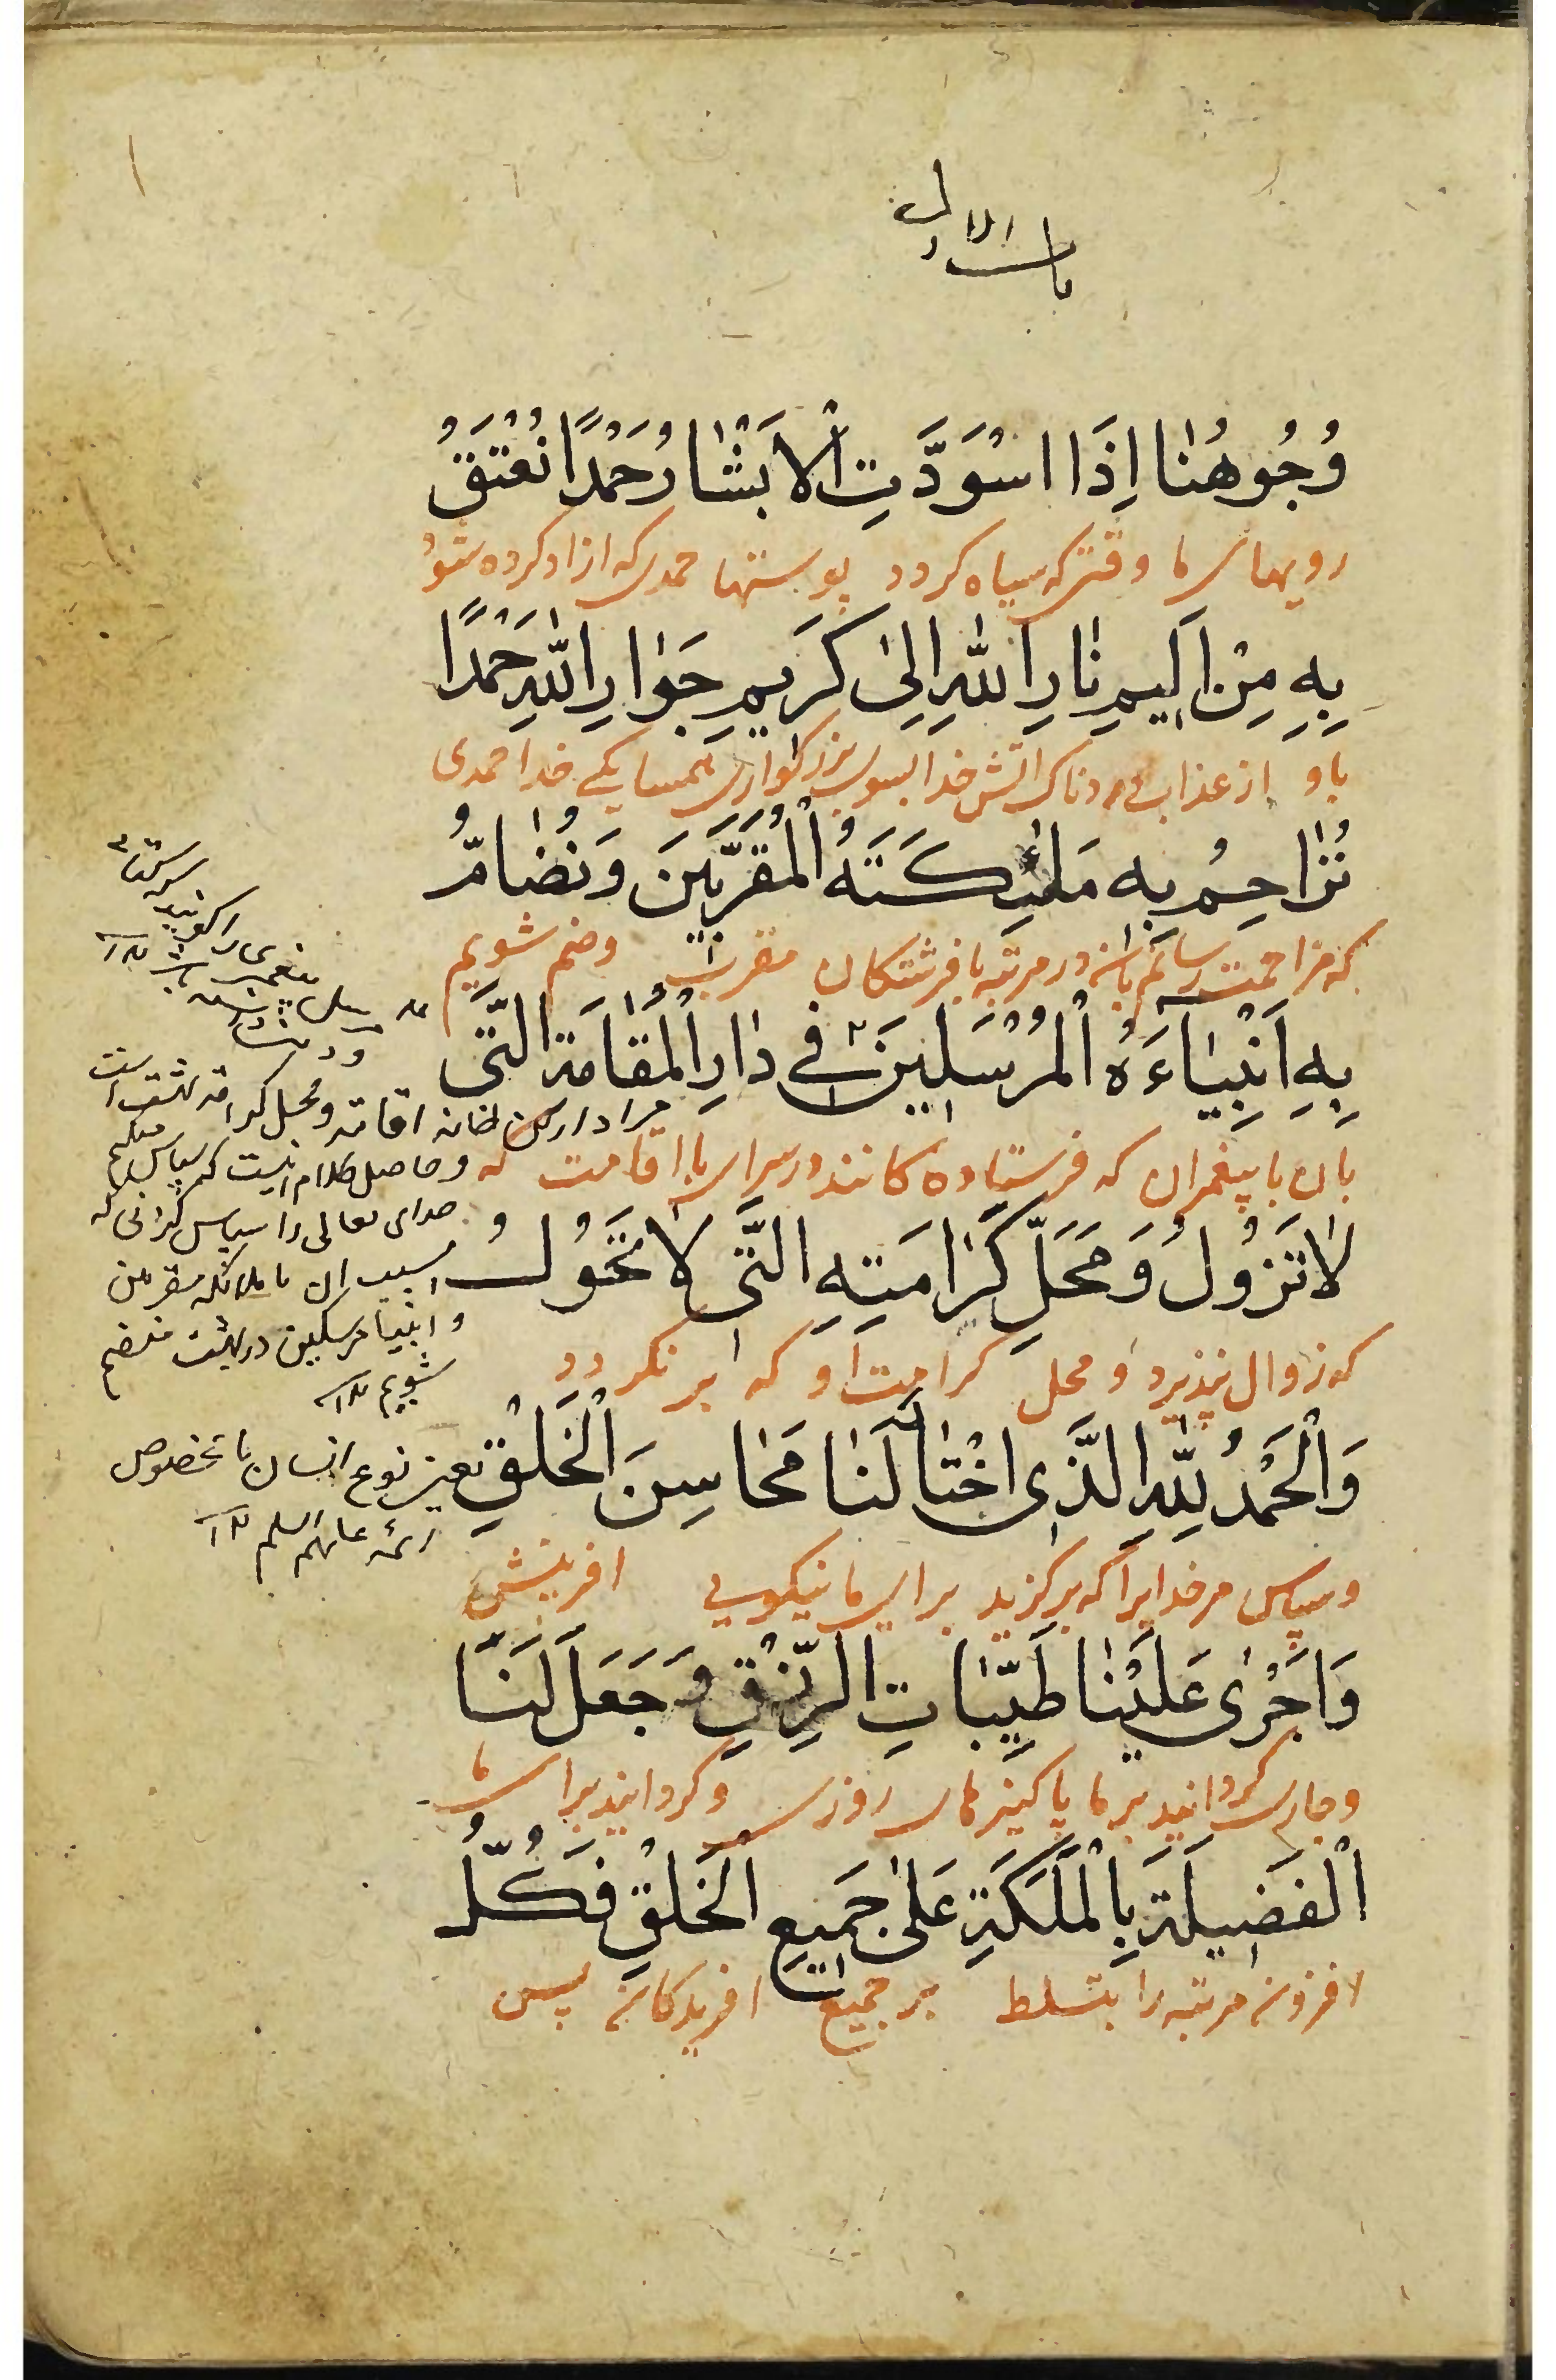 وُجُوهُنٰا اِذَا اسْوَدَّتِ الْاَبْشٰارُ حَمْدًا نُعْتَقُ
رویهای ما وقتی که سیاه کردد پوستها حمدی که ازاد کرده شوُ
بِهِ مِنْ اَلِيمِ نٰارِ اللّٰهِ اِلىٰ كَرِيمِ جَوٰارِ اللّٰهِ حَمْدًا
باو از عذاب دردناک اتش خدا بسوی بزرکواری همسایکی خدا حمدی
نُزٰاحِمُ بِهِ مَلٰئِكَتَهُ الْمُقَرَّبِينَ وَنُضٰامُّ
که مزاحمت رسانیم بان در مرتبه با فرشتکان مقرب وضم شویم
بِهِ اَنْبِيٰاءَهُ الْمُرْسَلِينَ فِي دٰارِ الْمُقٰامَةِ الَّتِى
بان با پیغمران که فرستاده کانند در سرای با اقامت که
لٰا تَزُولُ وَمَحَلِّ كَرٰامَتِهِ الَّتِى لٰا تَحُولُ
که زوال نپذیرد و محل کرامت او که بر نکردد
وَالْحَمْدُ لِلّٰهِ الَّذِى اخْتٰارَ لَنٰا مَحٰاسِنَ الْخَلْقِ
وسپاس مر خدایرا که برکزید برای ما نیکویی افرینش
وَاَجْرٰى عَلَيْنٰا طَيِّبٰاتِ الرِّزْقِ وَجَعَلَ لَنَا
وجاری کردانید بر ما پاکیزهای روزی وکردانید برای ما
الْفَضِيلَةَ بِالْمَلَكَةِ عَلىٰ جَمِيعِ الْخَلْقِ فَكُلُّ
افزونی مرتبه را بتسلط بر جمیع افریدکان پس
مراد از خانه اقامة ومحل کرامة بهشت است
وحاصل کلام اینست که سپاس میکنم
خدای تعالی را سپاس کذرانی که
بسبب ان با ملائکه مقربین
و انبیا مرسلین در بهشت منضم
شویم
یعنی نوع انسان با تخصوص
ائمه علیهم السلم